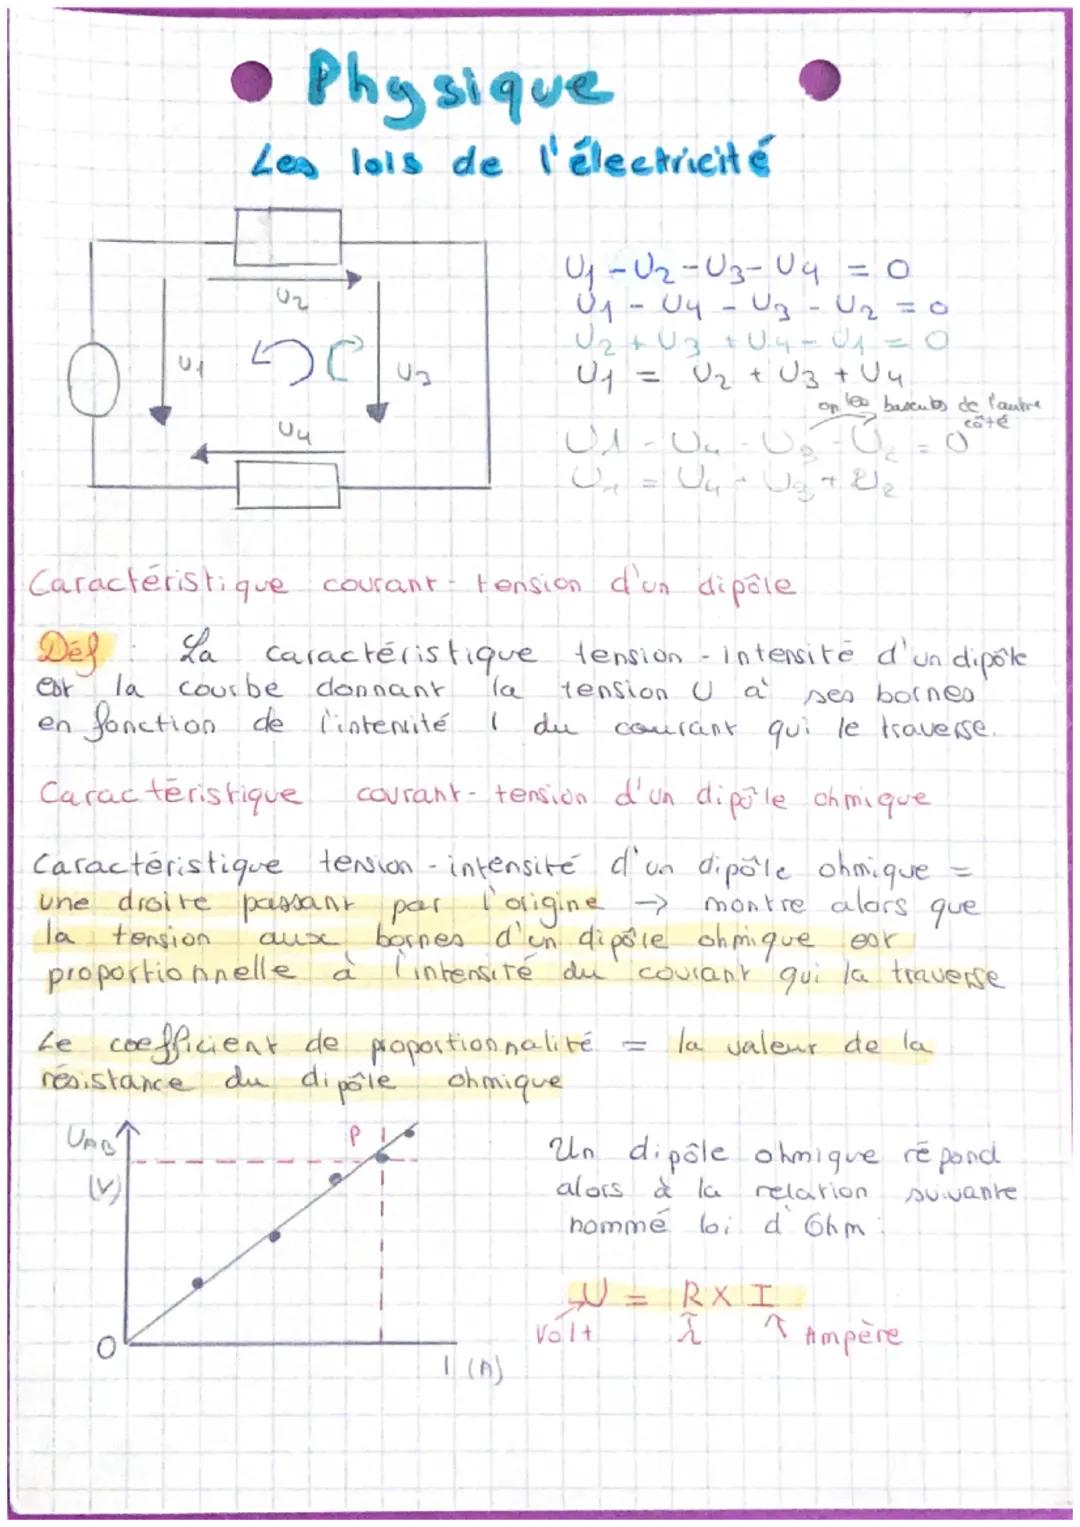 Physique
Les lois de l'électricité
U2
U1
U3
U4
U1 - U2 - U3 - U4 = 0
U1 - U4 - U3 - U2 = 0
U2 + U3 + U4 - U1 = 0
U1 = U2 + U3 + U4
on les bascules de l'autre
côté
U1 - U4 - U3 - U2 = 0
U1 = U4 + U3 + U2
Caractéristique courant - tension d'un dipôle
Déf : La caractéristique tension - intensité d'un dipôle
est la courbe donnant la tension U à ses bornes
en fonction de l'intensité I du courant qui le traverse.
Caractéristique courant - tension d'un dipôle ohmique
Caractéristique tension - intensité d'un dipôle ohmique =
une droite passant par l'origine → montre alors que
la tension aux bornes d'un dipôle ohmique est
proportionnelle à l'intensité du courant qui la traverse
Le coefficient de proportionnalité = la valeur de la
résistance du dipôle ohmique
UAB
(V)
P
O
I (A)
Un dipôle ohmique répond
alors à la relation suivante
nommé loi d'Ohm :
U = R X I
Volt
Ampère